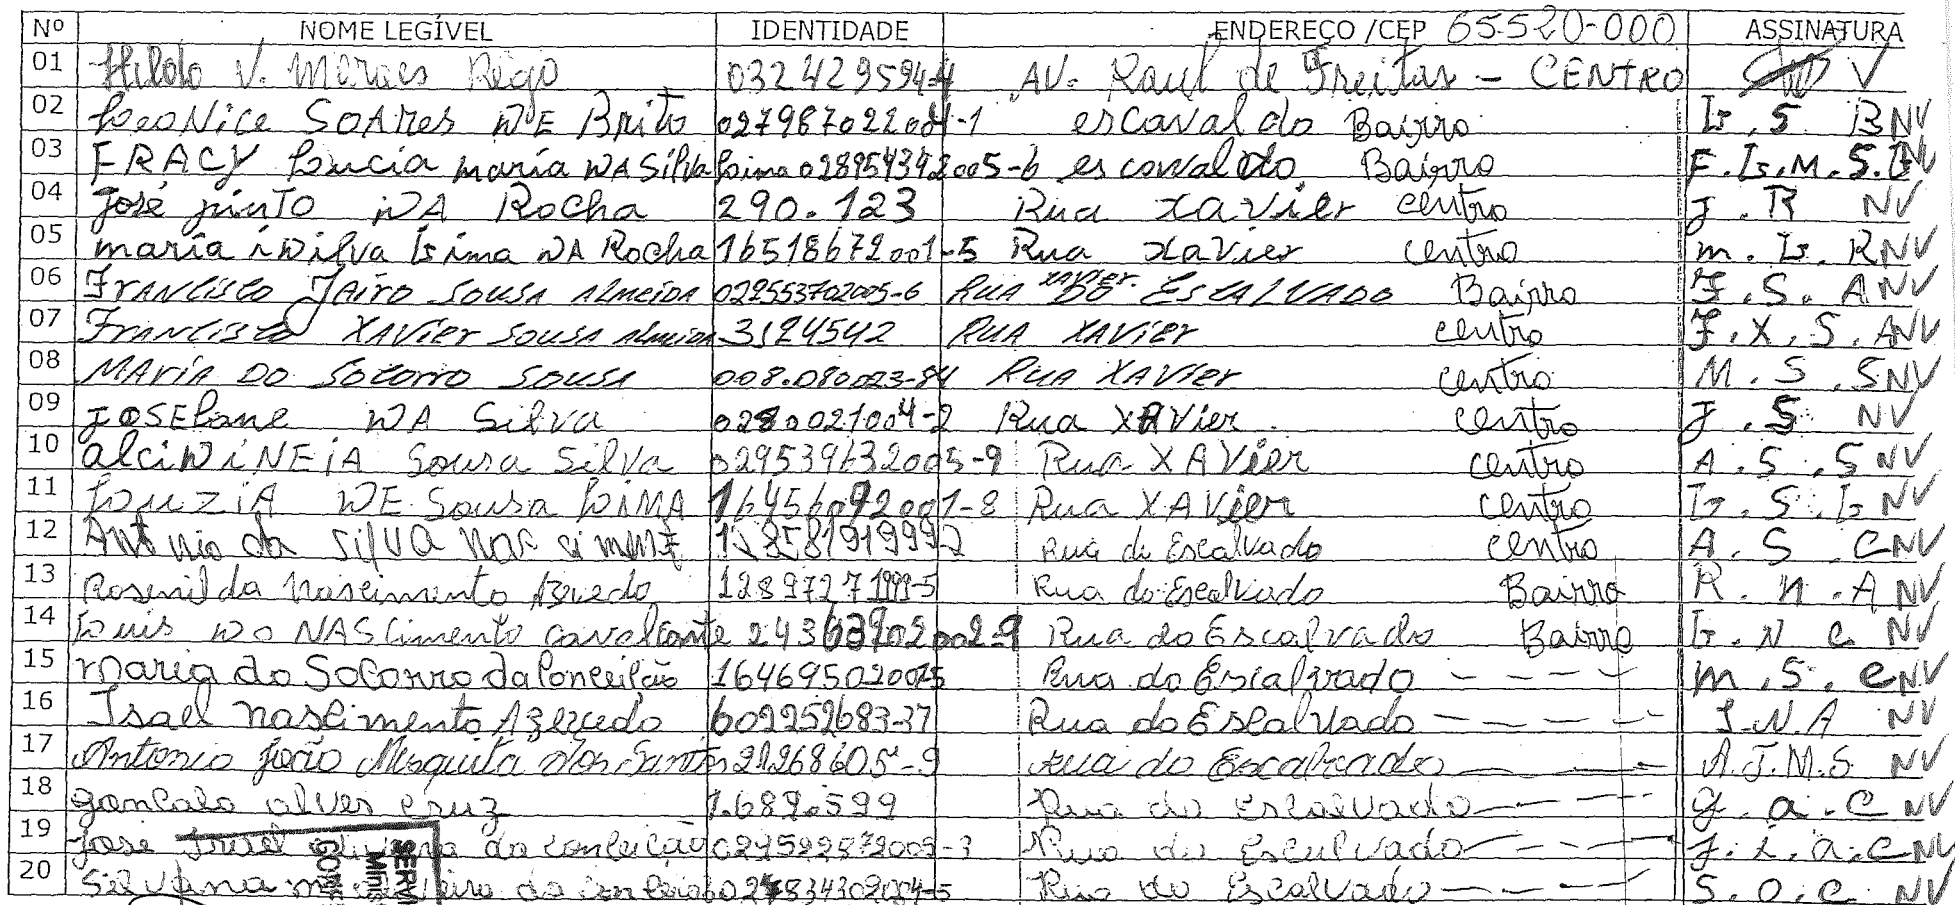 Nº NOME LEGÍVEL IDENTIDADE ENDEREÇO /CEP 65520-000 ASSINATURA
01 Hildo V. Moraes Rego 032429594-4 AV. Raul de Freitas - CENTRO V
02 LeoNice SOAres DE Brito 027987022004-1 escavaldo Bairro L. S B NV
03 FRACY Lucia maria DA Silva Lima 028954342005-6 escavaldo Bairro F. L. M. S. L NV
04 José pinto DA Rocha 290.123 Rua xavier centro J. R NV
05 maria iDilva Lima DA Rocha 16518672001-5 Rua xavier centro m. L. R NV
06 FrANCisco JAiro SousA Almeida 022553702005-6 RUA DO ESCALVADO Bairro F. S. A NV
07 Francisco XAVier Sousa Almeida 3124542 RUA XAVier centro F. X. S. A NV
08 MAriA DO Socorro Sousa 008.080023-84 RUA XAVier centro M. S. S NV
09 JOSELane DA Silva 0280021004-2 Rua XAVier centro J. S NV
10 alciDiNEiA Sousa Silva 029539632005-9 Rua XAVier centro A. S. S NV
11 LuuziA DE Sousa LiMA 16456092001-8 Rua XAVier centro L. S. L NV
12 Antonio da SilVA Rua do Escalvado centro A. S. C NV
13 Rosenilda Nascimento Azevedo 12897271999-5 Rua do Escalvado Bairro R. N. A NV
14 Luis DO NAScimento cavalcante Rua do Escalvado Bairro L. N C NV
15 maria do Socorro da Conceição 1646950200 Rua do Escalvado m. S. C NV
16 Isael nascimento Azevedo 602252683-37 Rua do Escalvado I. N. A NV
17 Antonio João Mesquita dos Santos 21268605-9 rua do Escalvado A.J.M.S NV
18 gonCalo alves cruz 1.689.599 Rua do escalvado g. a. C NV
19 jose Israel da conceição 024592872003-3 Rua do Esculvado J. I. a. C NV
20 Silvana da conceição Rua do Escalvado S. O. C. NV
SERV
MINIS